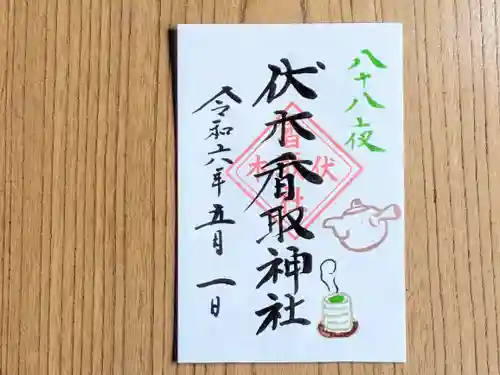 八十八夜
伏木香取神社
令和六年五月一日